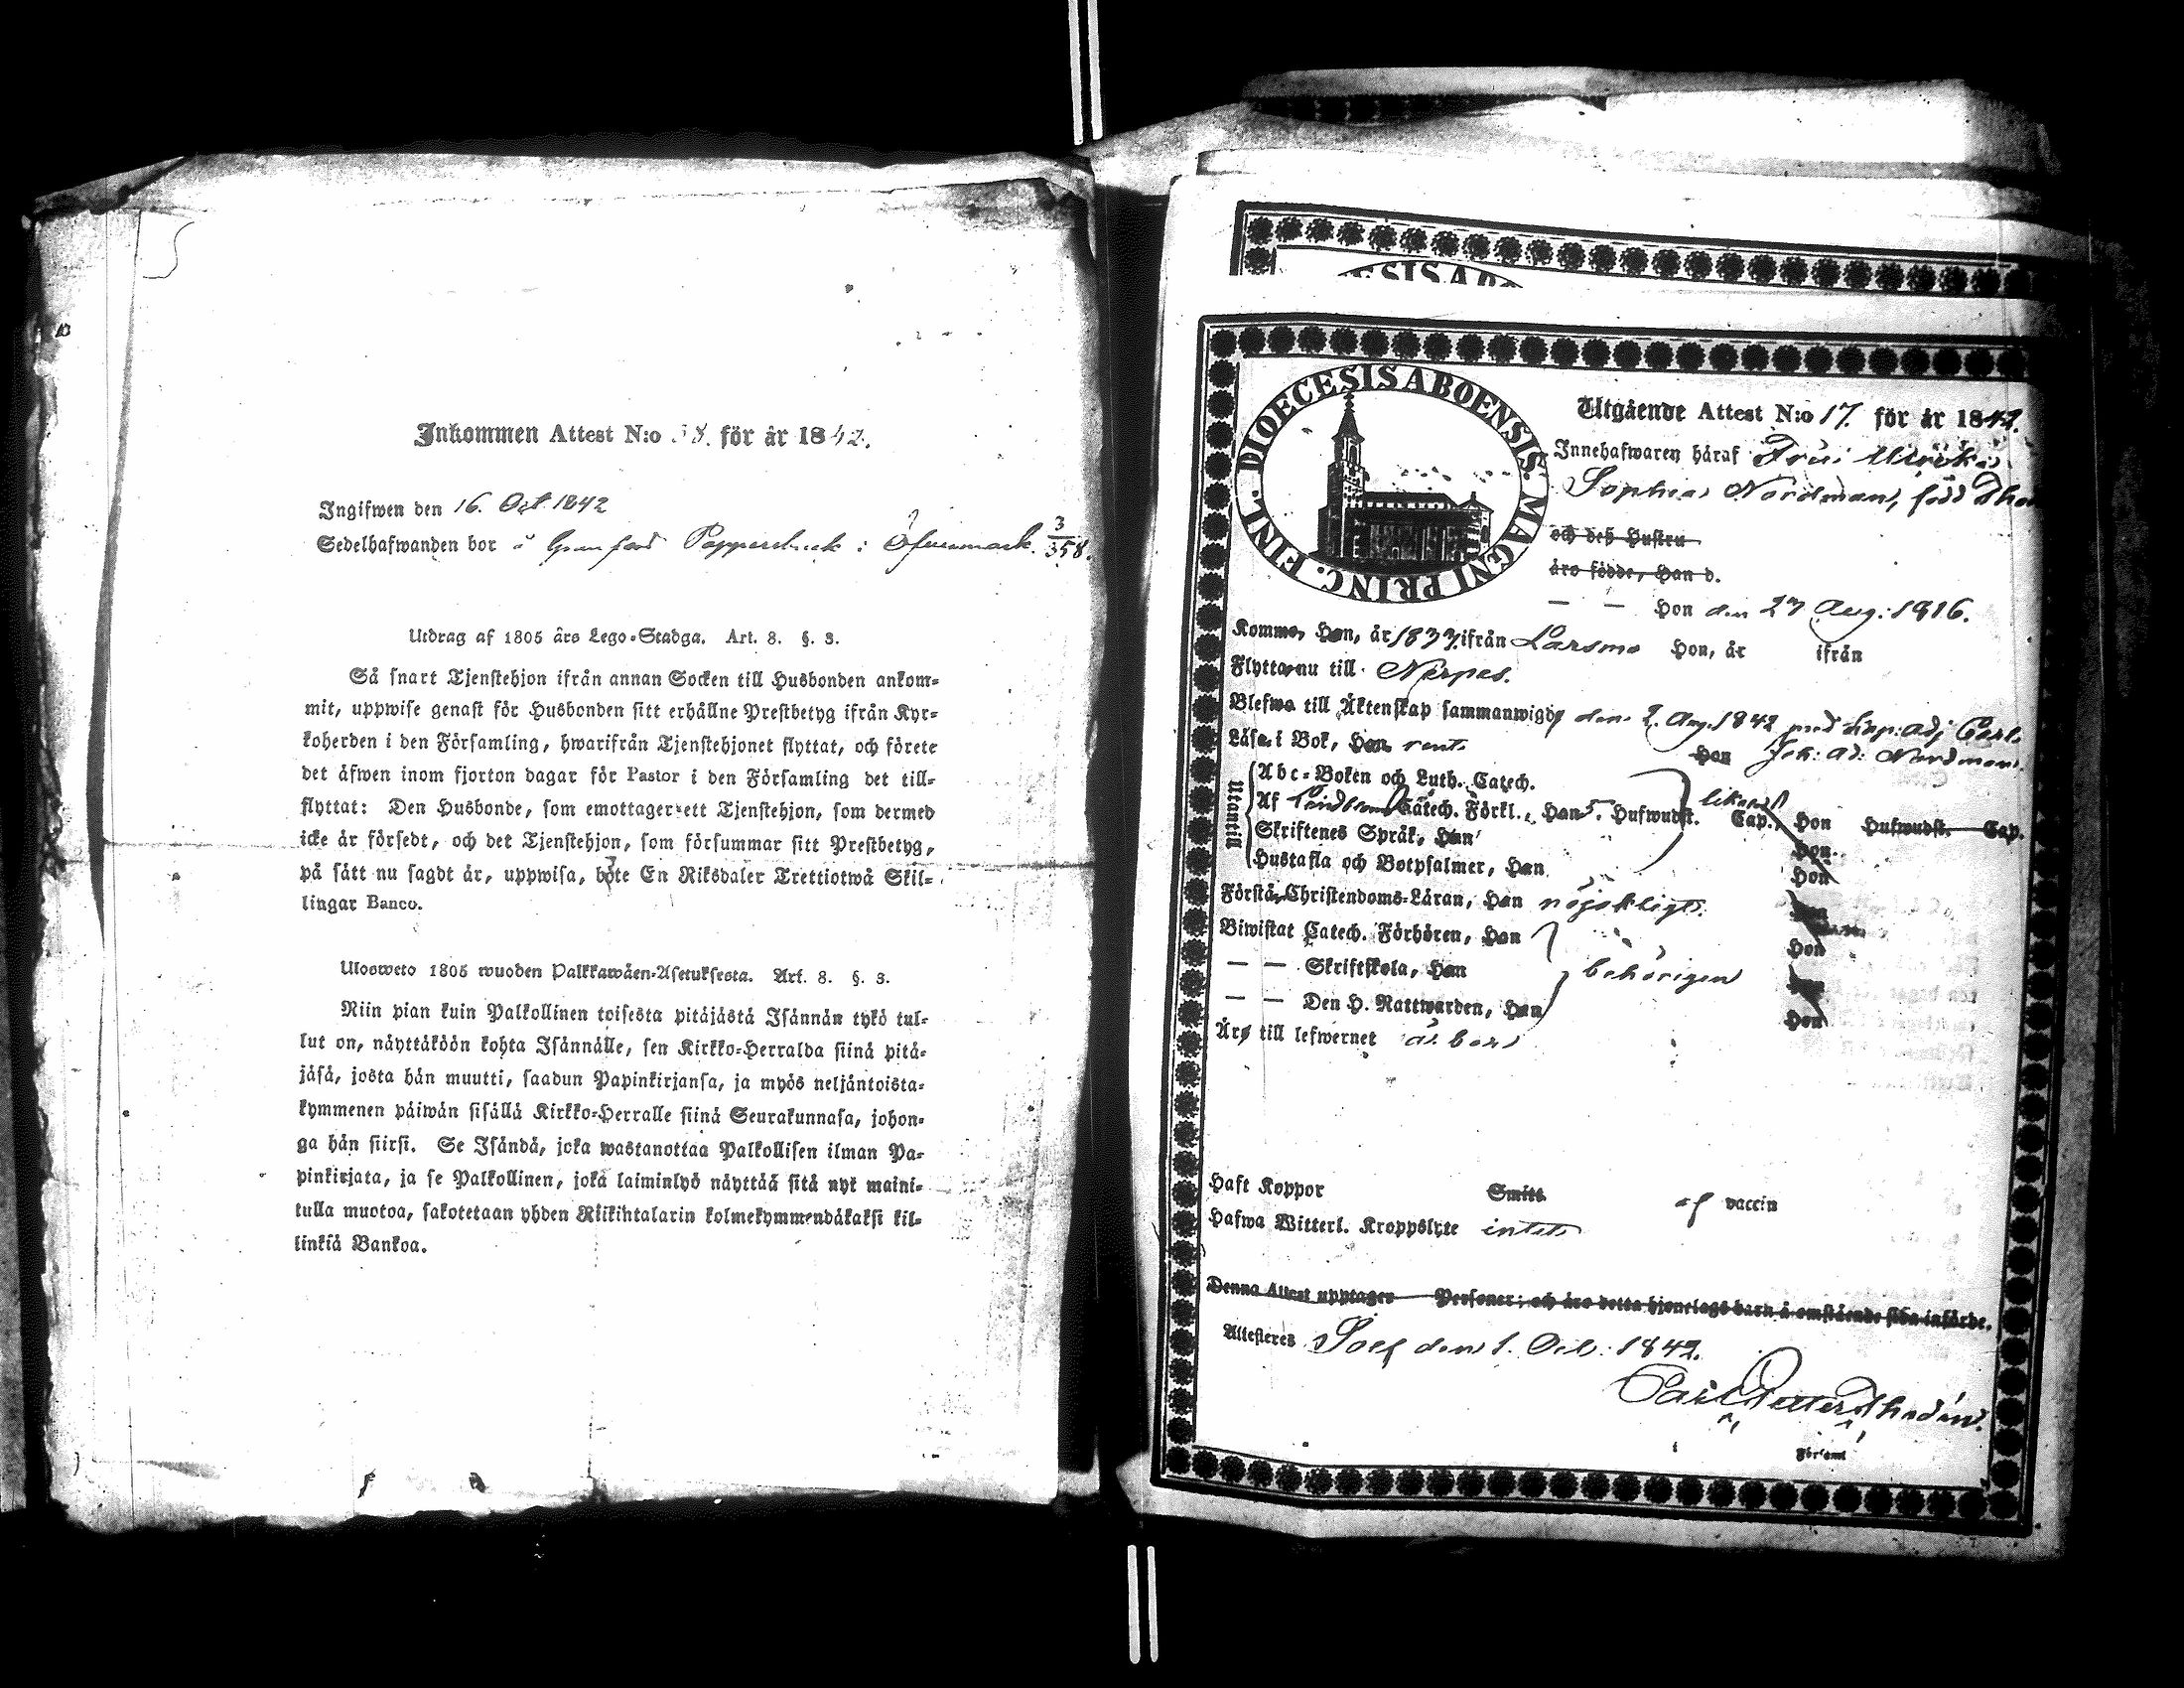 Inkommen Attest N:o 58. för år 1842.
Ingifwen den 16. Oct 1842
Sedelhafwanden bor å Pappersbruk i Öfvermark. 3/358.
Utdrag af 1805 års Lego-Stadga. Art. 8. §. 3.
Så snart Tjenstehjon ifrån annan Socken till Husbonden ankom-
mit, uppwise genast för Husbonden sitt erhållne Prestbetyg ifrån Kyr-
koherden i den Församling, hwarifrån Tjenstehjonet flyttat, och förete
det äfwen inom fjorton dagar för Pastor i den Församling det till-
flyttat: Den Husbonde, som emottager ett Tjenstehjon, som dermed
icke är försedt, och det Tjenstehjon, som försummar sitt Prestbetyg,
på sätt nu sagdt är, uppwisa, böte En Riksdaler Trettiotwå Skil-
lingar Banco.
Ulosweto 1805 wuoden Palkkawäen-Asetuksesta. Art. 8. §. 3.
Niin pian kuin Palkollinen toisesta pitäjästä Isännän tykö tul-
lut on, näyttäköön kohta Isännälle, sen Kirkko-Herralda siinä pitä-
jäsä, josta hän muutti, saadun Papinkirjansa, ja myös neljäntoista-
kymmenen päiwän sisällä Kirkko-Herralle siinä Seurakunnasa, johon-
ga hän siirsi. Se Isändä, joka wastanottaa Palkollisen ilman Pa-
pinkirjata, ja se Palkollinen, joka laiminlyö näyttää sitä nyt maini-
tulla muotoa, sakotetaan yhden Riikintalarin kolmekymmendäkaksi kil-
linkiä Bankoa.
DIOECESIS ABOENSIS. MAGNI PRINC. FINL.
Utgående Attest N:o 17. för år 1842.
Innehafwaren häraf Fru Ulrika
Sophia Nordman, född
och deß Hustru
äro födde, Han d.
— — Hon den 27 Aug: 1816.
Komme, Han, år 1833 ifrån Larsmo Hon, år ifrån
Flytta nu till Närpes.
Blefwo till Äktenskap sammanwigde den 2. Aug. 1842 med Cap: adj Carl
Läsa i Bok, Han rent Hon Joh: Ad: Nordman.
Utantill
Abc-Boken och Luth. Catech.
Af Lindbloms Catech. Förkl., Han 5. Hufwudst. Cap. Hon Hufwudst. Cap.
Skriftenes Språk, Han Hon
Hustafla och Botpsalmer, Han Hon
Förstå Christendoms-Läran, Han nöjaktigt. Hon
Biwistat Catech. Förhören, Han Hon
— — Skriftskola, Han behörigen Hon
— — Den H. Nattwarden, Han Hon
Äro till lefwernet ärbar
Haft Koppor Smitt af vaccin
Hafwa Witterl. Kroppslyte intet
Denna Attest upptager Personer; och äro detta hjonelags barn å omstående sida införde.
Attesteres den 1. Oct: 1842.